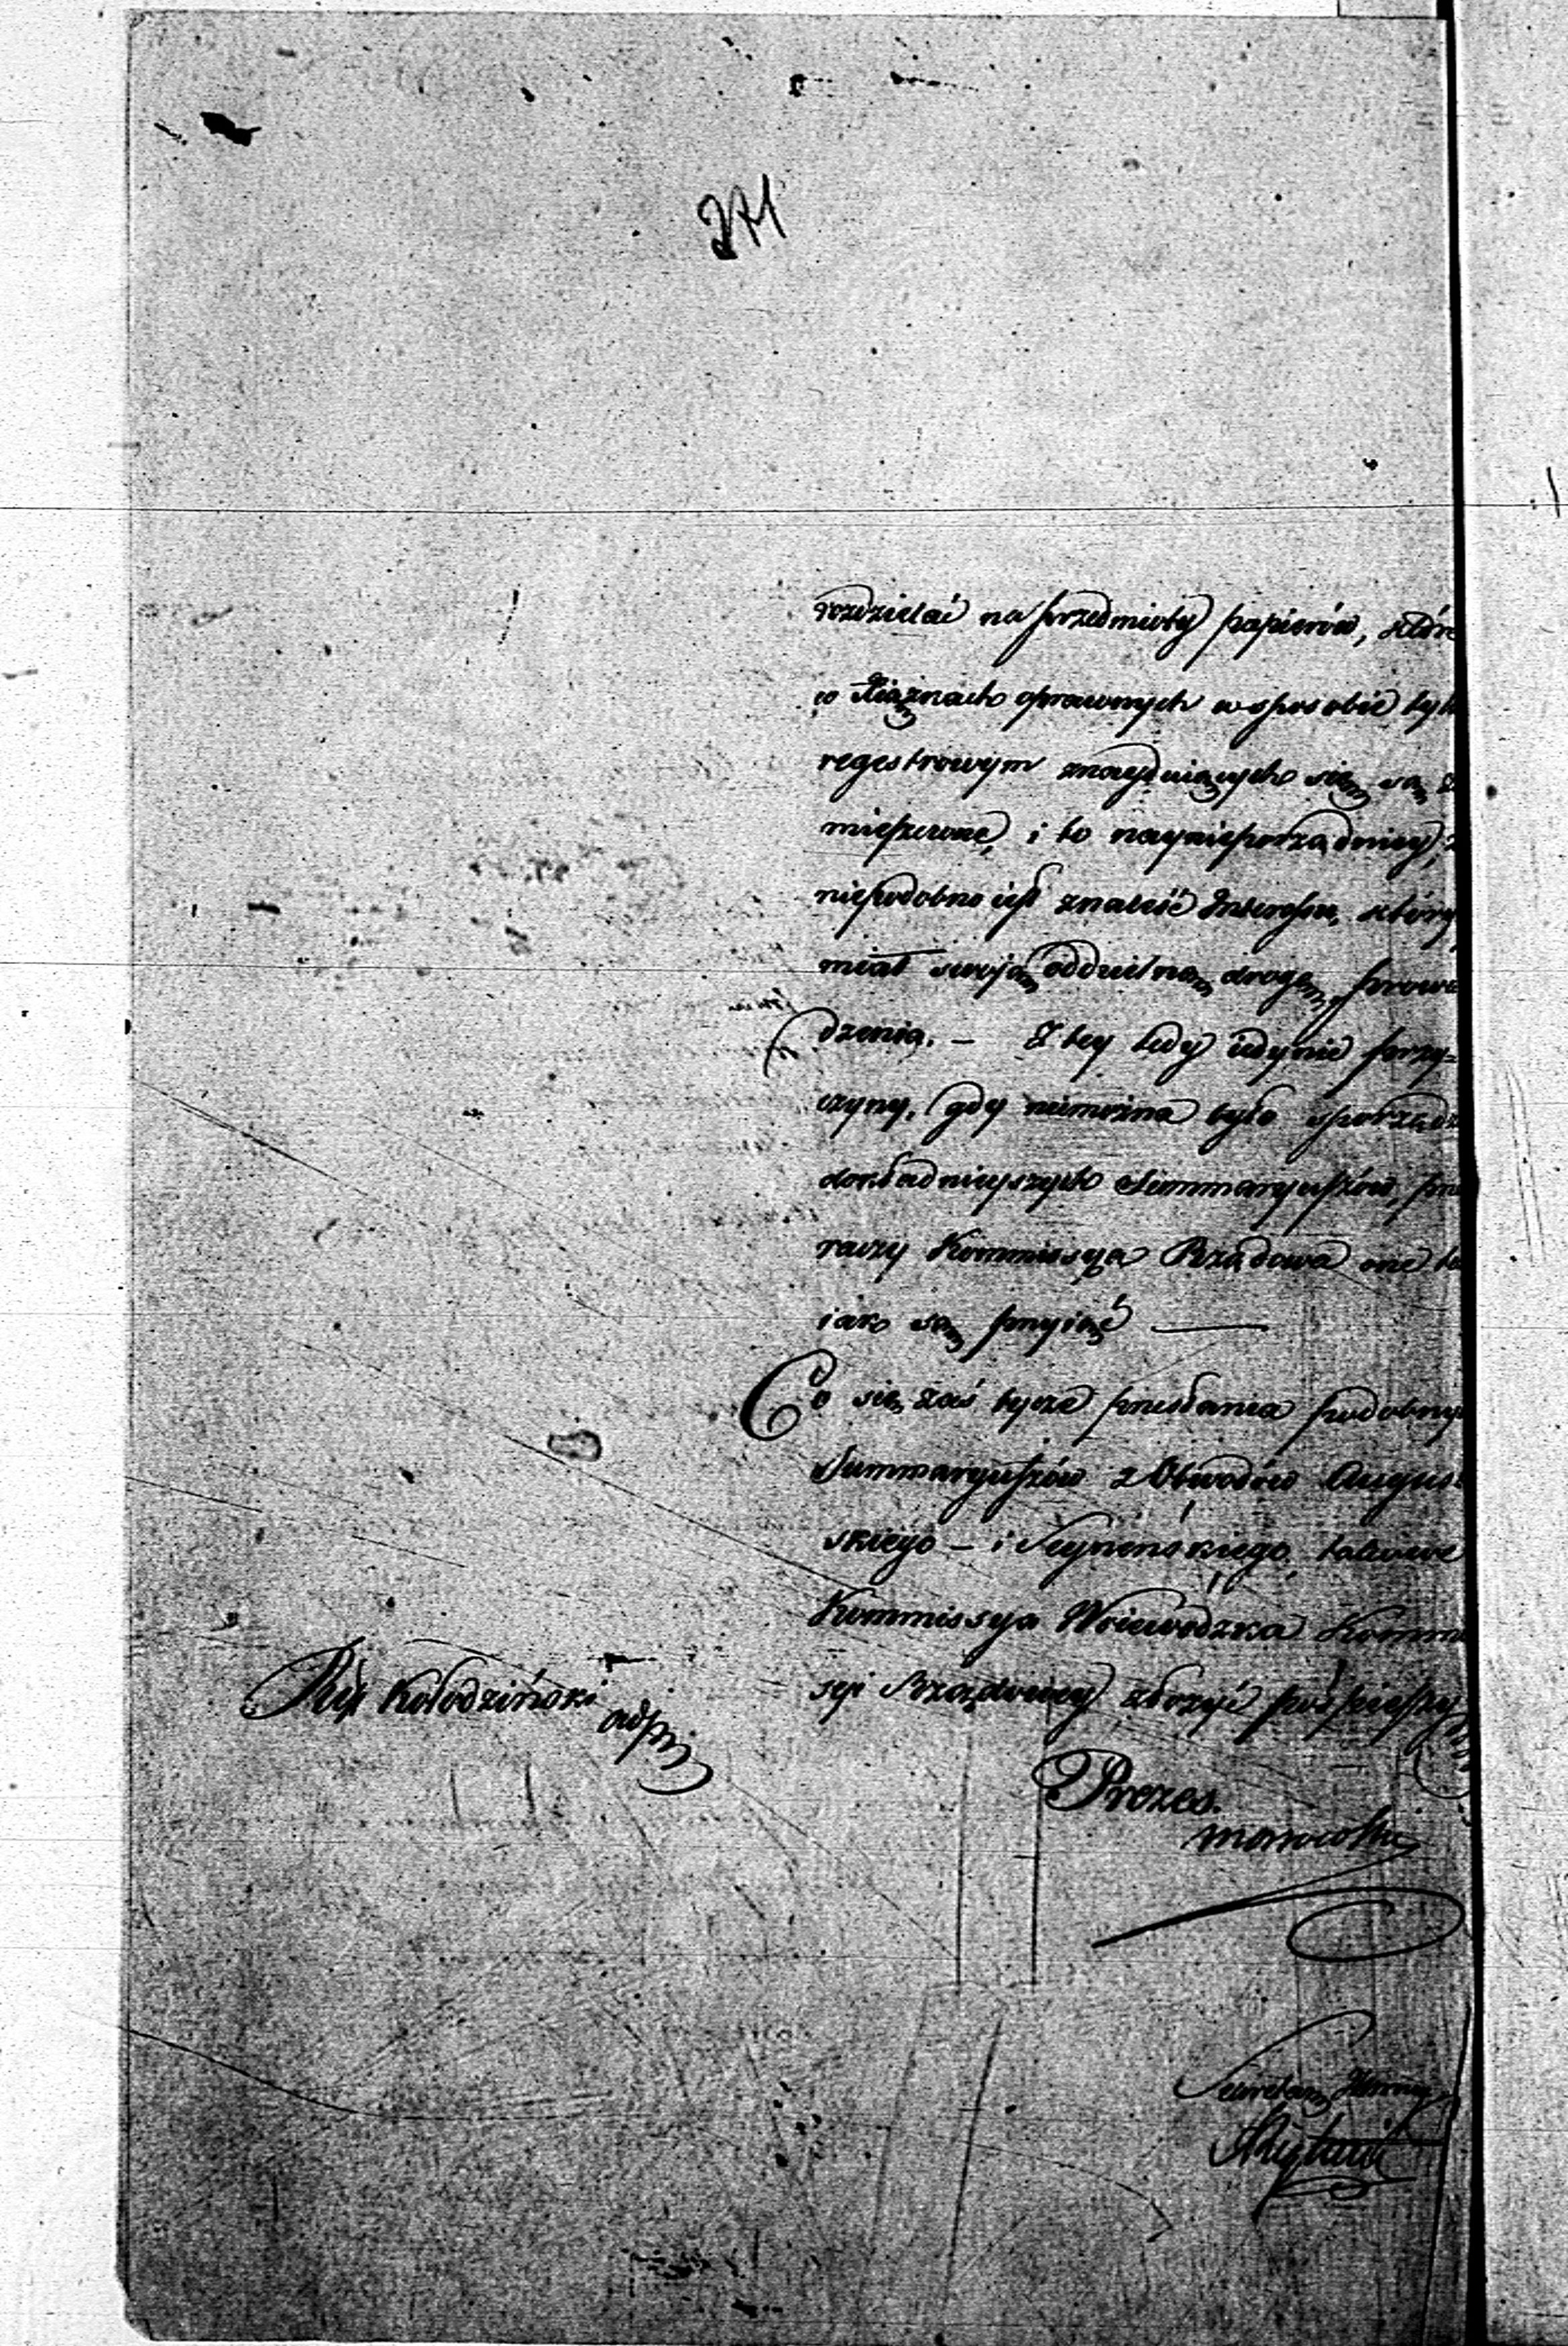 271
rozdzielać na przedmioty papierów, które
w Xiążkach oprawnych w sposobie tyl
regestrowym znayduiących się, są
mieszczone, i to naynieporządniey,
niepodobno iest znaleść Interessu, który
miał swoją oddzielną drogę, prowa
dzenia. — Z tey tedy iedynie przy=
czyny, gdy niemożna było sporządz
dokładnieyszych Summaryuszów,
raczy Kommissya Rządowa one
iak są przyiąć —
Co się zaś tycze przesłania podobny
Summaryuszów z Obwodów Augus
skiego — i Seynińskiego, takowe
Kommissya Woiewódzka Kommi
syi Rządowey złożyć pośpieszy
Rix Kołodziński
adp
Prezes.
Sekretarz Jlny